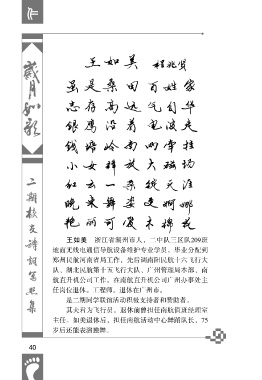 王如美 程兆贤
虽是桑田百姓家
志存高远气自华
银鹰沿着电波走
小女释放大磁场
红云一朵缀天涯
王如美 浙江省湖州市人，二中队三区队209班
地面无线电通信导航设备维护专业学员。毕业分配到
郑州民航河南省局工作，先后调南阳民航十六飞行大
队、湖北民航第十五飞行大队、广州管理局本部、南
航直升机公司工作。在南航直升机公司广州办事处主
任岗位退休。工程师。退休在广州市。
是二期同学联谊活动积极支持者和赞助者。
其夫君为飞行员，退休前曾担任南航值班经理室
主任。如美退休后，担任南航活动中心舞蹈队长，75
岁后还能表演独舞。
岁月如歌
二期校友诗词写照集
40